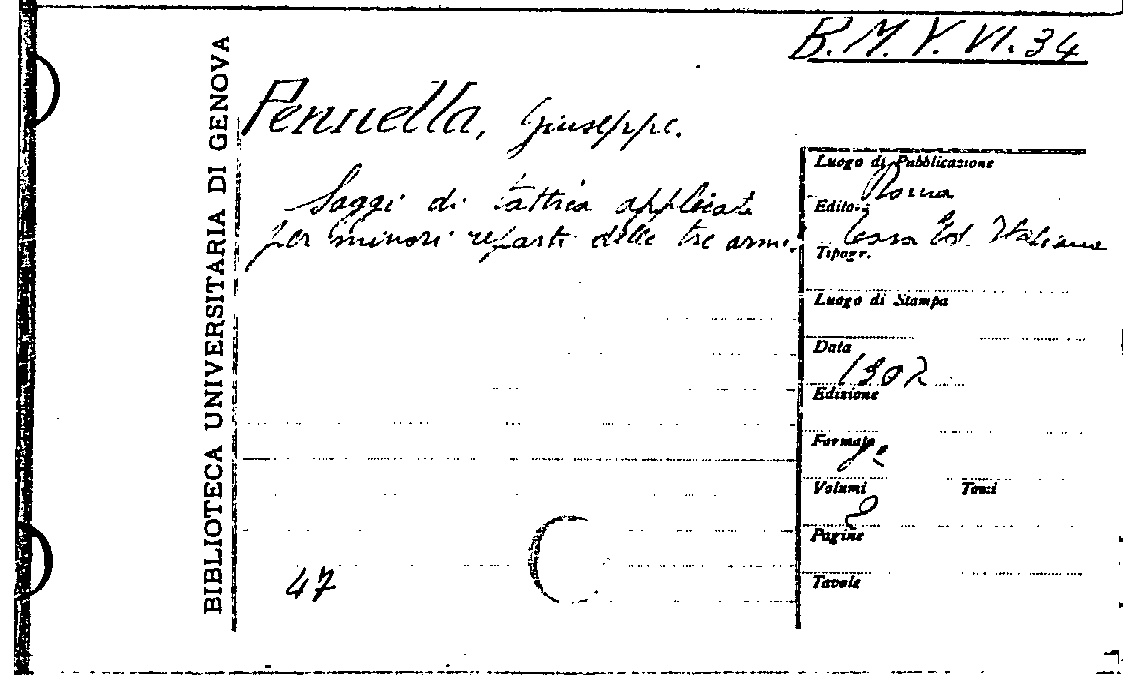 B.M.V. VI. 34
BIBLIOTECA UNIVERSITARIA DI GENOVA
Pennella, Giuseppe.
Saggi di tattica applicata
per minori reparti delle tre armi.
Luogo di Pubblicazione
Roma
Editore
Casa Ed. Italiana
Tipogr.
Luogo di Stampa
Data
1907
Edizione
Formato
8°
Volumi Tomi
2
Pagine
Tavole
47